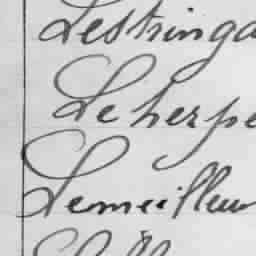 Lestringa
Leherpe
Lemeilleu